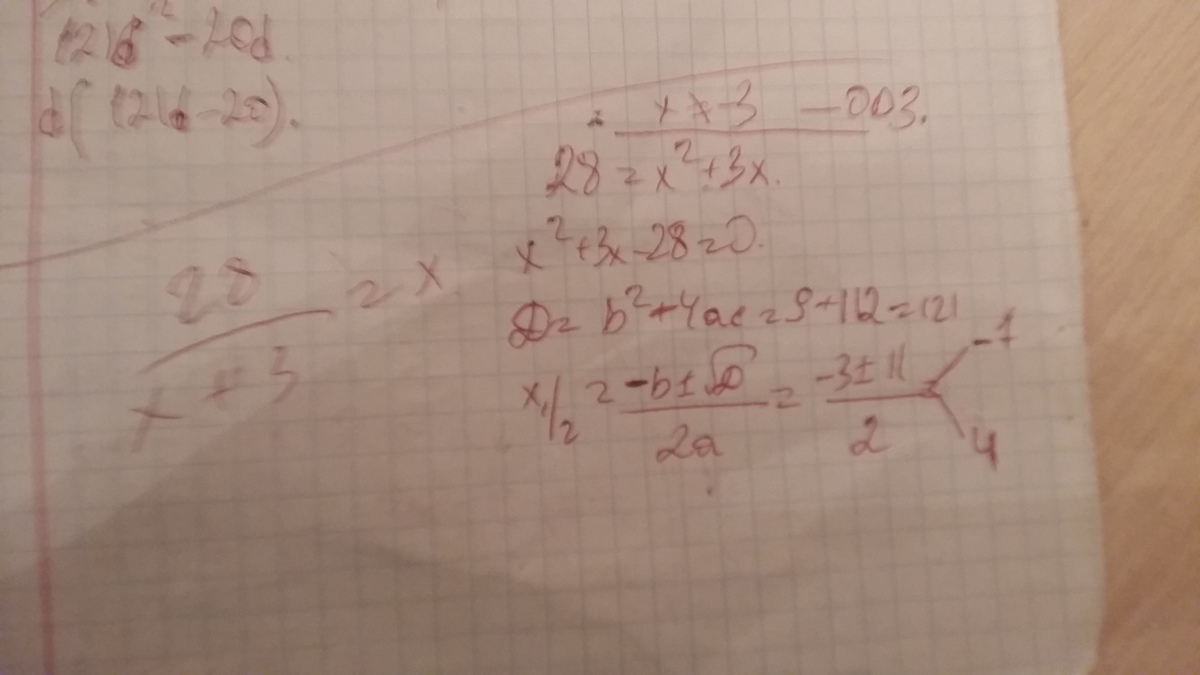 121d² - 20d.
d(121d - 20).
= x ≠ -3 - ОДЗ.
28 = x² + 3x.
x² + 3x - 28 = 0.
28/(x + 3) = x
D = b² + 4ac = 9 + 112 = 121
x₁/₂ = (-b ± √D)/2a = (-3 ± 11)/2 < -7
4